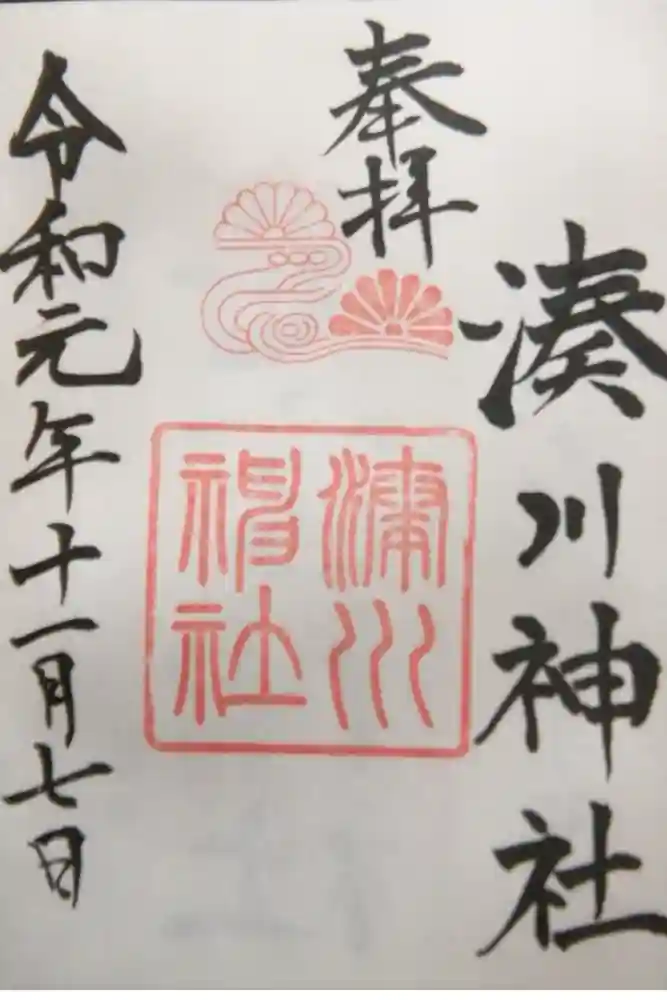 奉拝
湊川神社
湊川神社
令和元年十一月七日